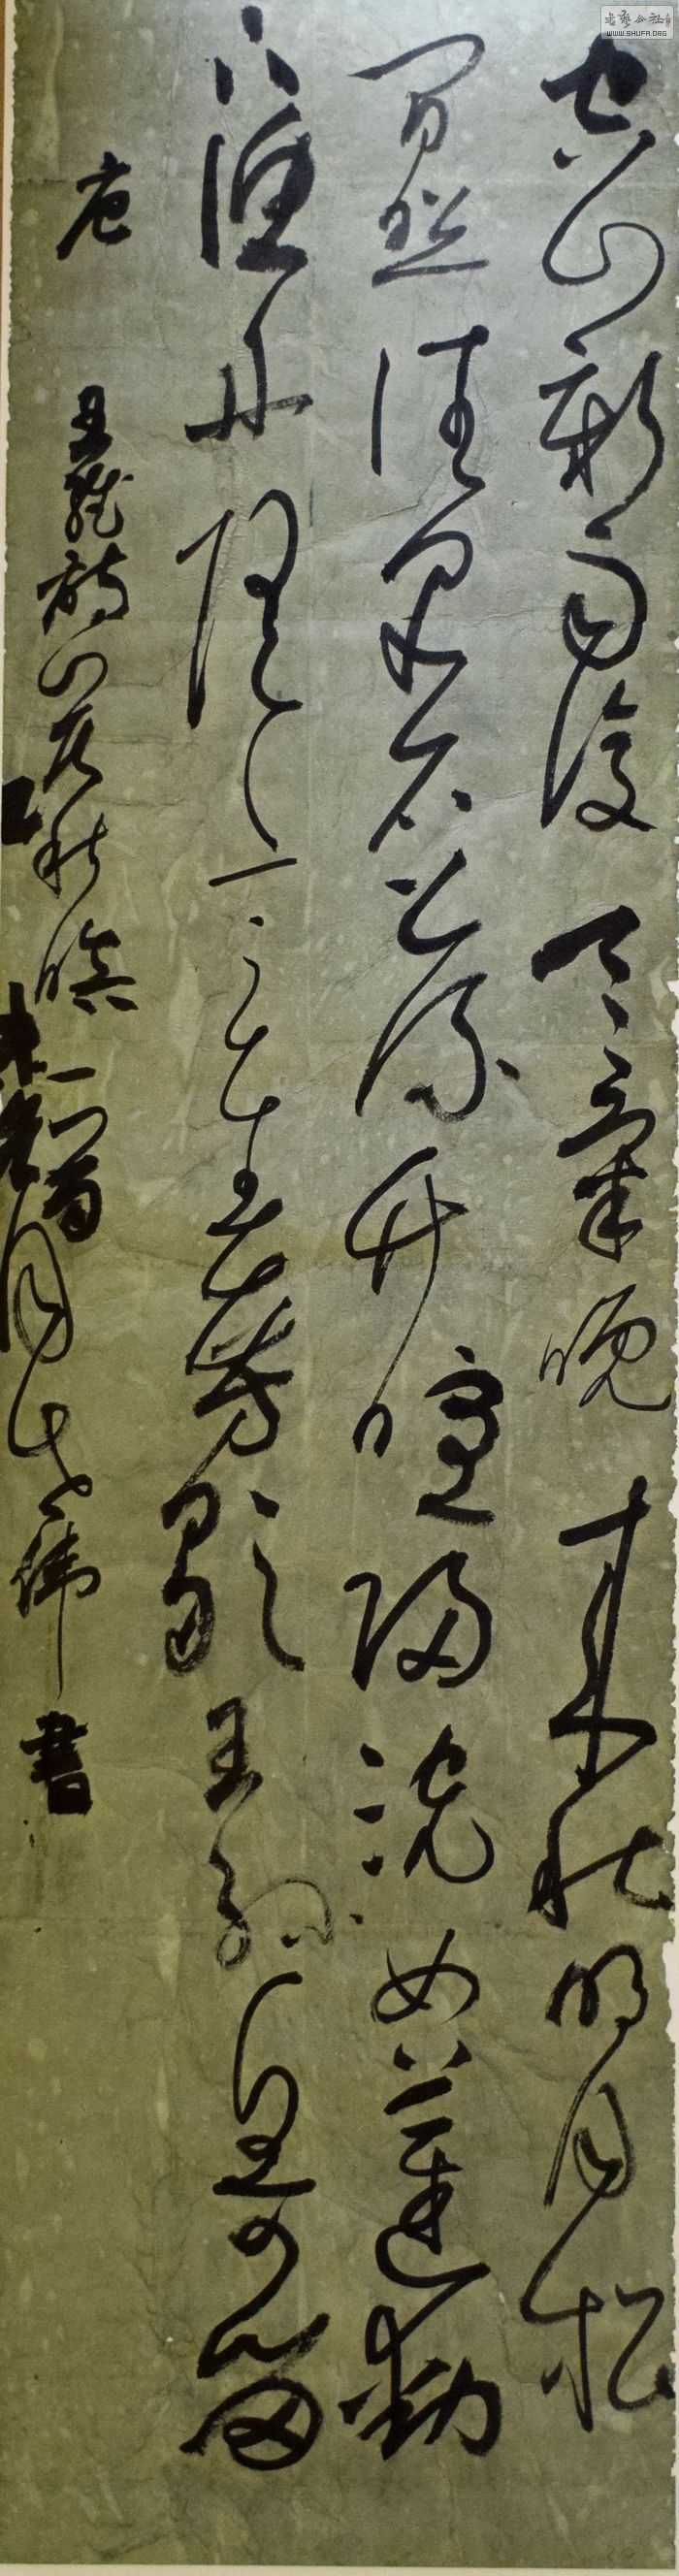 空山新雨後天氣晚來秋明月松
間照清泉石上流竹喧歸浣女蓮動
下漁舟隨意春芳歇王孫自可留
唐 王維詩山居秋暝一首
書
书艺公社
WWW.SHUFA.ORG